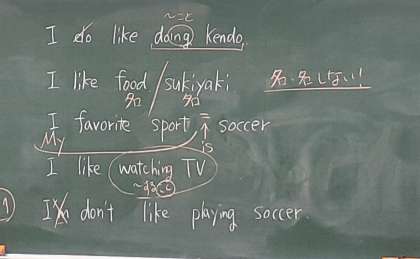 ～こと
I do like doing Kendo.
I like food / sukiyaki 名・名しない!
名 名
I favorite sport = soccer
My is
I like watching TV
～すること
I'm don't like playing soccer.